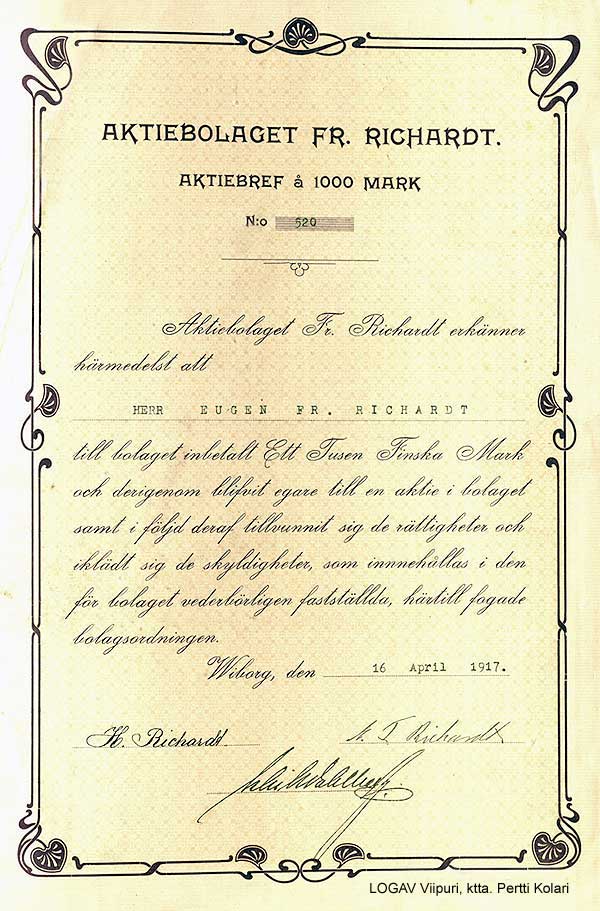 AKTIEBOLAGET FR. RICHARDT.
AKTIEBREF å 1000 MARK
N:o 520
Aktiebolaget Fr. Richardt erkänner
härmedelst att
HERR EUGEN FR. RICHARDT
till bolaget inbetalt Ett Tusen Finska Mark
och derigenom blifvit egare till en aktie i bolaget
samt i följd deraf tillvunnit sig de rättigheter och
iklädt sig de skyldigheter, som innnehållas i den
för bolaget vederbörligen fastställda, härtill fogade
bolagsordningen.
Wiborg, den 16 April 1917.
H. Richardt
Richardt
LOGAV Viipuri, ktta. Pertti Kolari